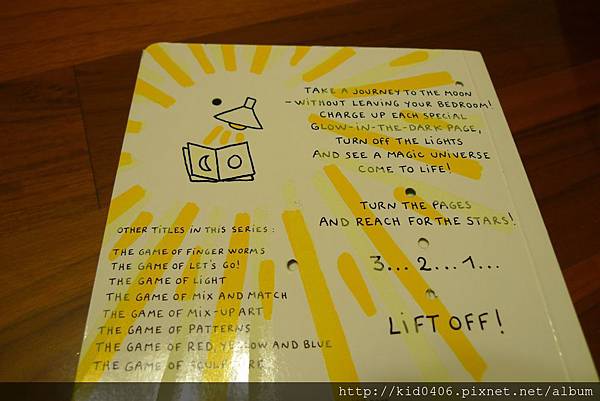 TAKE A JOURNEY TO THE MOON
-WITHOUT LEAVING YOUR BEDROOM!
CHARGE UP EACH SPECIAL
GLOW-IN-THE-DARK PAGE,
TURN OFF THE LIGHTS
AND SEE A MAGIC UNIVERSE
COME TO LIFE!
TURN THE PAGES
AND REACH FOR THE STARS!
3... 2... 1...
LIFT OFF!
OTHER TITLES IN THIS SERIES:
THE GAME OF FINGER WORMS
THE GAME OF LET'S GO!
THE GAME OF LIGHT
THE GAME OF MIX AND MATCH
THE GAME OF MIX-UP ART
THE GAME OF PATTERNS
THE GAME OF RED, YELLOW AND BLUE
THE GAME OF SCULPTURE
http://kid0406.pixnet.net/album